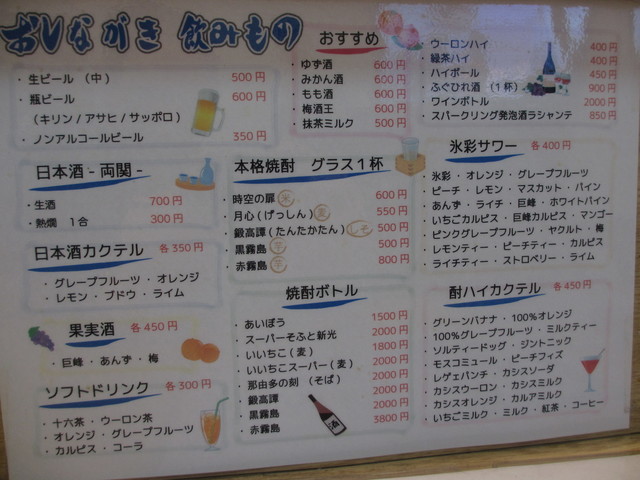 おしながき 飲みもの
・生ビール (中) 500円
・瓶ビール 600円
(キリン/アサヒ/サッポロ)
・ノンアルコールビール 350円
日本酒 - 両関 -
・生酒 700円
・熱燗 1合 300円
日本酒カクテル 各350円
・グレープフルーツ・オレンジ
・レモン・ブドウ・ライム
果実酒 各450円
・巨峰・あんず・梅
ソフトドリンク 各300円
・十六茶・ウーロン茶
・オレンジ・グレープフルーツ
・カルピス・コーラ
おすすめ
・ゆず酒 600円
・みかん酒 600円
・もも酒 600円
・梅酒王 600円
・抹茶ミルク 500円
本格焼酎 グラス1杯
・時空の扉 米 600円
・月心(げっしん) 麦 550円
・鍛高譚(たんたかたん) しそ 500円
・黒霧島 芋 500円
・赤霧島 芋 800円
焼酎ボトル
・あいぼう 1500円
・スーパーそふと新光 2000円
・いいちこ(麦) 1800円
・いいちこスーパー(麦) 2000円
・那由多の刻 (そば) 2000円
・鍛高譚 2000円
・黒霧島 2000円
・赤霧島 3800円
・ウーロンハイ 400円
・緑茶ハイ 400円
・ハイボール 450円
・ふぐひれ酒 (1杯) 900円
・ワインボトル 2000円
・スパークリング発泡酒ラシャンテ 850円
氷彩サワー 各400円
・氷彩・オレンジ・グレープフルーツ
・ピーチ・レモン・マスカット・パイン
・あんず・ライチ・巨峰・ホワイトパイン
・いちごカルピス・巨峰カルピス・マンゴー
・ピンクグレープフルーツ・ヤクルト・梅
・レモンティー・ピーチティー・カルピス
・ライチティー・ストロベリー・ライム
酎ハイカクテル 各450円
・グリーンバナナ・100%オレンジ
・100%グレープフルーツ・ミルクティー
・ソルティードッグ・ジントニック
・モスコミュール・ピーチフィズ
・レゲェパンチ・カシスソーダ
・カシスウーロン・カシスミルク
・カシスオレンジ・カルアミルク
・いちごミルク・ミルク・紅茶・コーヒー